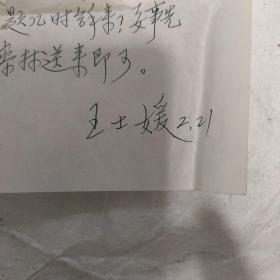 题几时译来?要事先
寄林送来即可。
王士媛 2.21